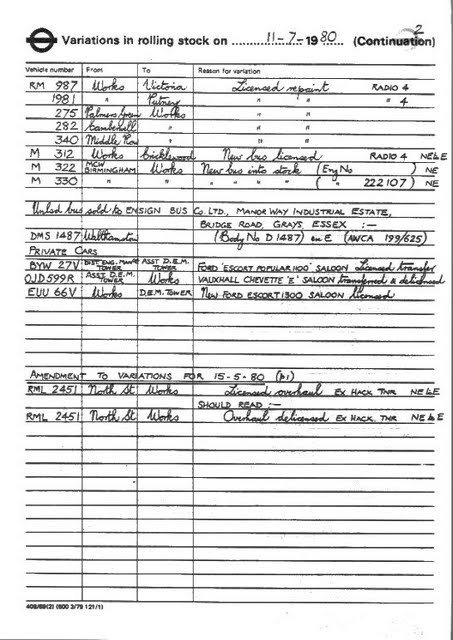 2
Variations in rolling stock on 11-7-1980 (Continuation)
Vehicle number From To Reason for variation
RM 987 Works Victoria Licensed repaint RADIO 4
1981 " Putney " " " 4
275 Palmers Green Works " "
282 Camberwell " " "
340 Middle Row " " "
M 312 Works Cricklewood New bus licensed RADIO 4 NE&E
M 322 MCW BIRMINGHAM Works New bus into stock (Eng No ) NE
M 330 " " " " " " ( " 222107 ) NE
Unlsd bus sold to ENSIGN BUS Co LTD., MANOR WAY INDUSTRIAL ESTATE,
BRIDGE ROAD, GRAYS, ESSEX :-
DMS 1487 Walthamstow (Body No D1487) in E (AWCA 199/625)
PRIVATE CARS
BYW 27V DIST. ENG. MANR TOWER ASST D.E.M. TOWER FORD 'ESCORT POPULAR 1100' SALOON Licensed transfer
OJD 599R ASST D.E.M. TOWER Works VAUXHALL CHEVETTE 'E' SALOON transferred & delicensed
EUU 66V Works D.E.M. TOWER NEW FORD ESCORT 1300 SALOON licensed
AMENDMENT TO VARIATIONS FOR 15-5-80 (p1)
RML 2451 North St Works Licensed overhaul EX HACK TNR NE&E
SHOULD READ :-
RML 2451 North St Works Overhaul delicensed EX HACK. TNR NE&E
408/69(2) (500 3/79 121/1)